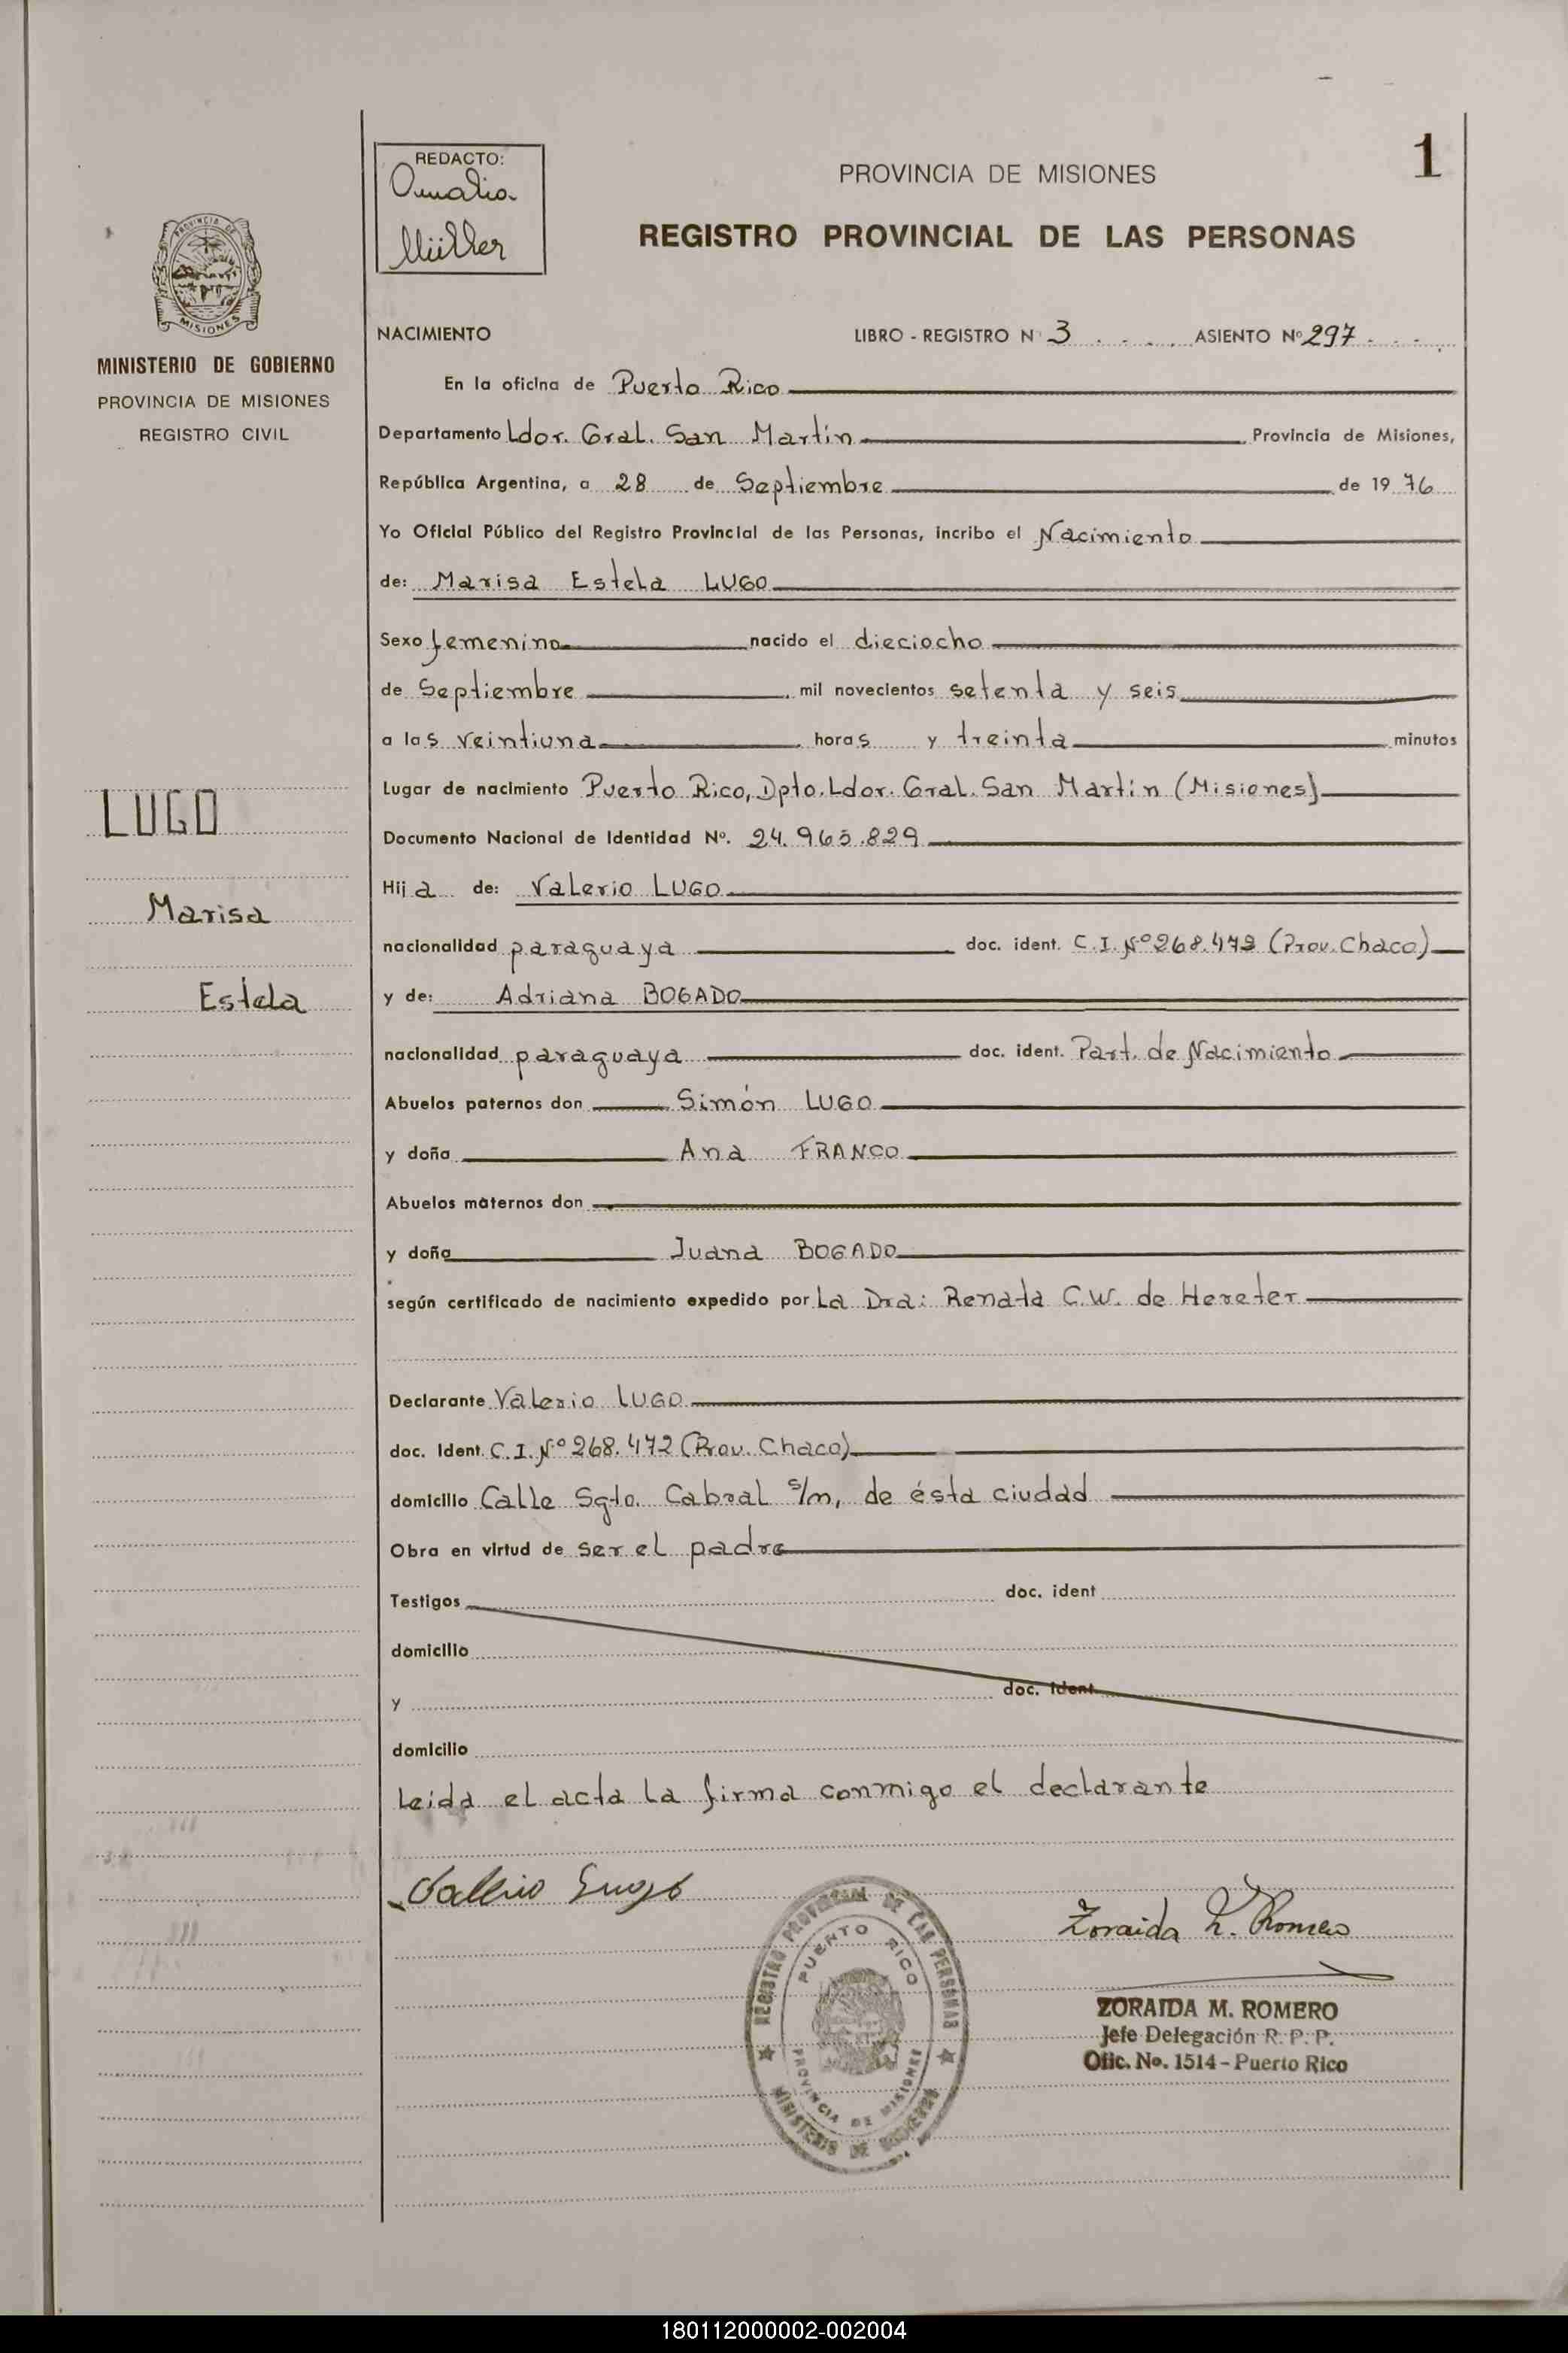 REDACTO:
Amalia
Müller
PROVINCIA DE MISIONES
1
REGISTRO PROVINCIAL DE LAS PERSONAS
PROVINCIA DE
MISIONES
MINISTERIO DE GOBIERNO
PROVINCIA DE MISIONES
REGISTRO CIVIL
LUGO
Marisa
Estela
NACIMIENTO LIBRO - REGISTRO Nº 3 ASIENTO Nº 297
En la oficina de Puerto Rico
Departamento Ldor. Gral. San Martín Provincia de Misiones,
República Argentina, a 28 de Septiembre de 19 76
Yo Oficial Público del Registro Provincial de las Personas, incribo el Nacimiento
de: Marisa Estela LUGO
Sexo femenino nacido el dieciocho
de Septiembre mil novecientos setenta y seis
a las veintiuna horas y treinta minutos
Lugar de nacimiento Puerto Rico, Dpto. Ldor. Gral. San Martín (Misiones)
Documento Nacional de Identidad Nº. 24.965.829
Hija de: Valerio LUGO
nacionalidad paraguaya doc. ident. C.I. Nº 268.472 (Prov. Chaco)
y de: Adriana BOGADO
nacionalidad paraguaya doc. ident. Part. de Nacimiento
Abuelos paternos don Simón LUGO
y doña Ana FRANCO
Abuelos maternos don
y doña Juana BOGADO
según certificado de nacimiento expedido por La Dra: Renata C.W. de Hereter
Declarante Valerio LUGO
doc. Ident. C.I. Nº 268.472 (Prov. Chaco)
domicilio Calle Sgto. Cabral s/n, de ésta ciudad
Obra en virtud de ser el padre
Testigos doc. ident
domicilio
y doc. ident
domicilio
Leida el acta la firma conmigo el declarante
Valerio Lugo
Zoraida M. Romero
REGISTRO PROVINCIAL DE LAS PERSONAS
PUERTO RICO
PROVINCIA DE MISIONES
MINISTERIO DE GOBIERNO
ZORAIDA M. ROMERO
Jefe Delegación R. P. P.
Ofic. No. 1514 - Puerto Rico
180112000002-002004